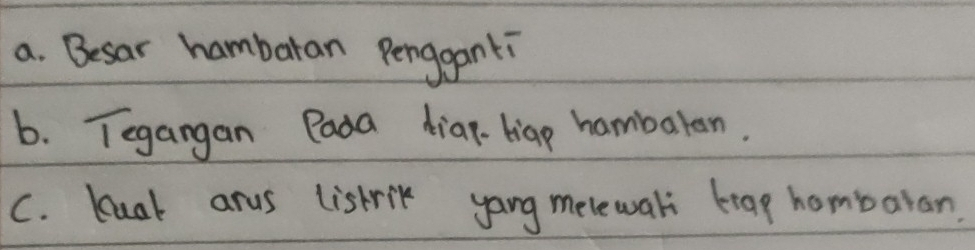 a. Besar hambatan Pengganti
b. Tegangan Pada tiap-tiap hambatan.
c. Kuat arus listrik yang melewati tiap hambatan.